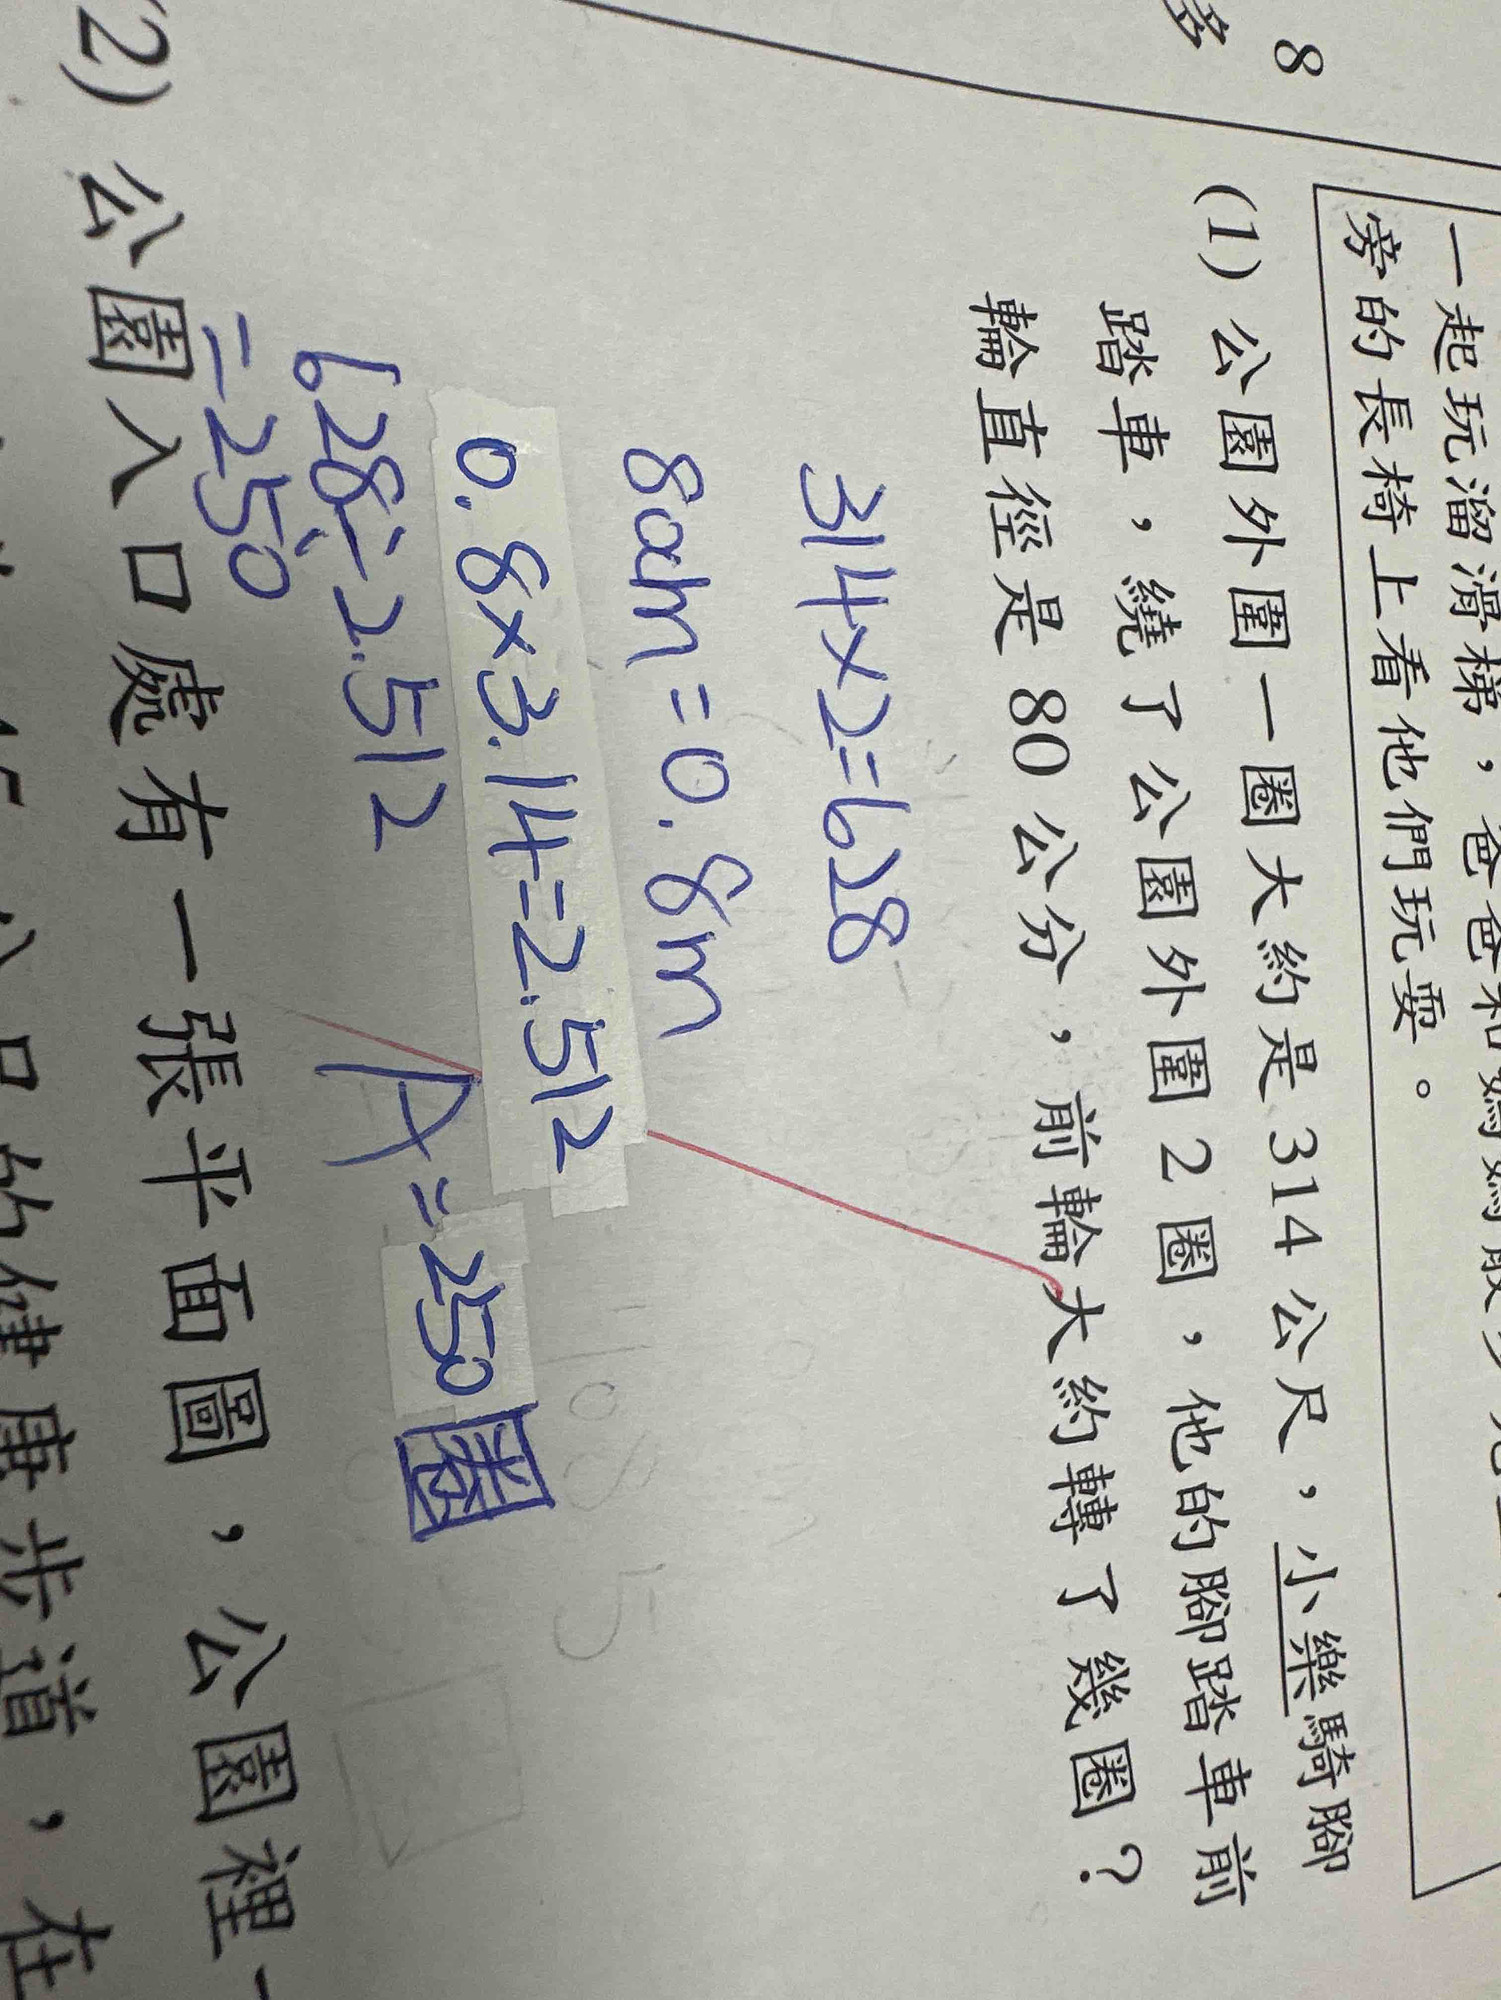 8
多
一起玩溜滑梯，爸爸和媽媽
旁的長椅上看他們玩耍。
(1) 公園外圍一圈大約是 314 公尺，小樂騎腳
踏車，繞了公園外圍 2 圈，他的腳踏車前
輪直徑是 80 公分，前輪大約轉了幾圈？
314×2=628
80cm=0.8m
0.8×3.14=2.512
628÷2.512
=250
A=250圈
(2) 公園入口處有一張平面圖，公園裡一
的健康步道，在